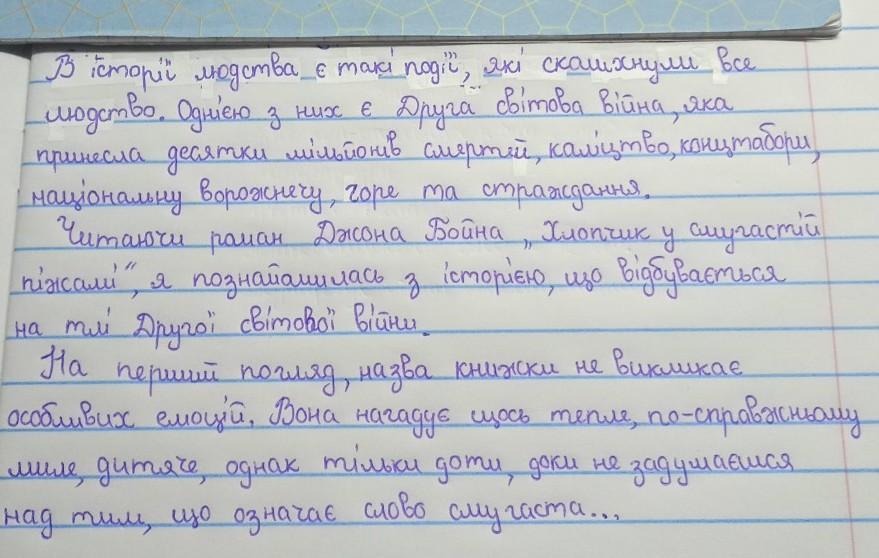 В історії людства є такі події, які сколихнули все
людство. Однією з них є Друга світова війна, яка
принесла десятки мільйонів смертей, каліцтво, концтабори,
національну ворожнечу, горе та страждання.
Читаючи роман Джона Бойна „Хлопчик у смугастій
піжамі“, я познайомилась з історією, що відбувається
на тлі Другої світової війни.
На перший погляд, назва книжки не викликає
особливих емоцій. Вона нагадує щось тепле, по-справжньому
миле, дитяче, однак тільки доти, доки не задумаєшся
над тим, що означає слово смугаста...